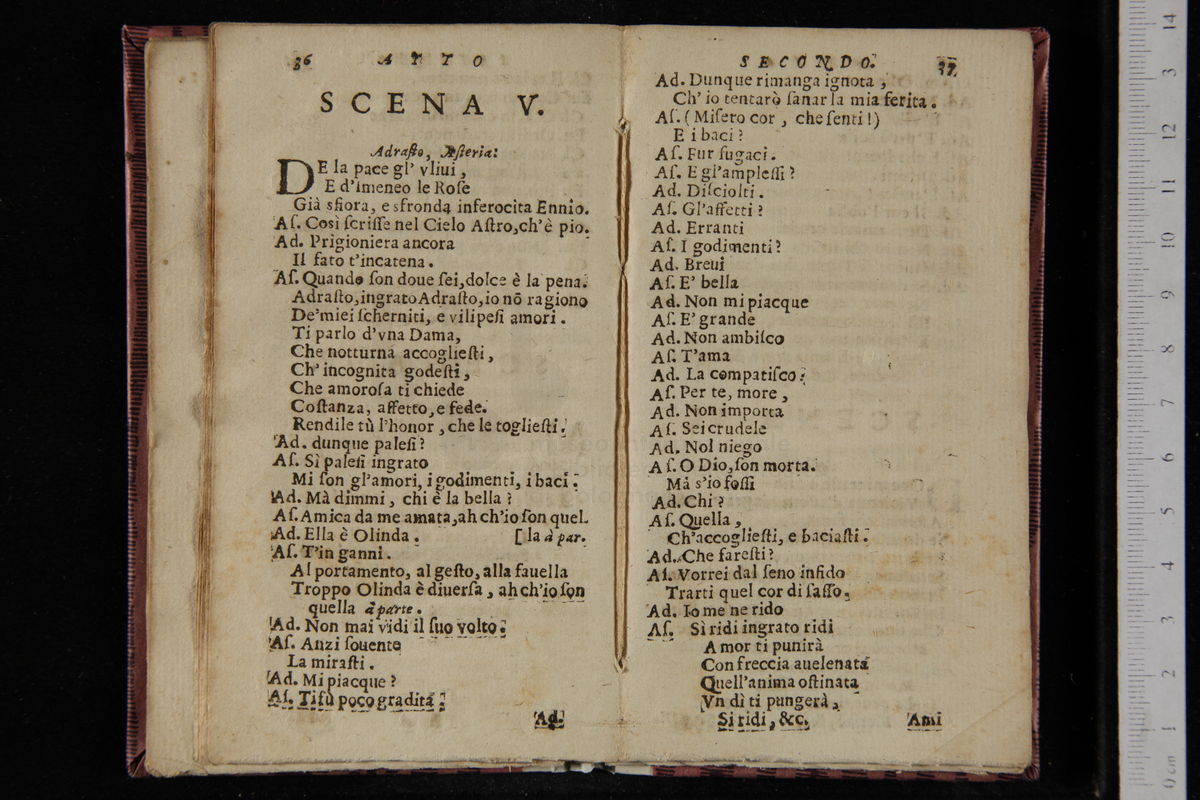 36 ATTO
SCENA V.
Adrasto, Asteria.
DE la pace gl' vliui,
E d'imeneo le Rose
Già sfiora, e sfronda inferocita Ennio.
Aſ. Così ſcriſſe nel Cielo Aſtro, ch'è pio.
Ad. Prigioniera ancora
Il fato t'incatena.
Aſ. Quando ſon doue ſei, dolce è la pena.
Adraſto, ingrato Adraſto, io nõ ragiono
De'miei ſcherniti, e vilipeſi amori.
Ti parlo d'vna Dama,
Che notturna accoglieſti,
Ch' incognita godeſti,
Che amoroſa ti chiede
Coſtanza, affetto, e fede.
Rendile tù l'honor, che le toglieſti.
Ad. dunque paleſi?
Aſ. Sì paleſi ingrato
Mi ſon gl'amori, i godimenti, i baci.
Ad. Mà dimmi, chi è la bella?
Aſ. Amica da me amata, ah ch'io ſon quel-
Ad. Ella è Olinda. [la à par.
Aſ. T'in ganni.
Al portamento, al geſto, alla fauella
Troppo Olinda è diuerſa, ah ch'io ſon
quella à parte.
Ad. Non mai vidi il ſuo volto.
Aſ. Anzi ſouente
La miraſti.
Ad. Mi piacque?
Aſ. Ti fù poco gradita.
Ad.
SECONDO. 37
Ad. Dunque rimanga ignota,
Ch' io tentarò ſanar la mia ferita.
Aſ. (Miſero cor, che ſenti!)
E i baci?
Aſ. Fur fugaci.
Aſ. E gl'ampleſſi?
Ad. Diſciolti.
Aſ. Gl'affetti?
Ad. Erranti
Aſ. I godimenti?
Ad. Breui
Aſ. E' bella
Ad. Non mi piacque
Aſ. E' grande
Ad. Non ambiſco
Aſ. T'ama
Ad. La compatiſco.
Aſ. Per te, more,
Ad. Non importa
Aſ. Sei crudele
Ad. Nol niego
Aſ. O Dio, ſon morta.
Mà s'io foſſi
Ad. Chi?
Aſ. Quella,
Ch'accoglieſti, e baciaſti.
Ad. Che fareſti?
Aſ. Vorrei dal ſeno infido
Trarti quel cor di ſaſſo.
Ad. Io me ne rido
Aſ. Sì ridi ingrato ridi
Amor ti punirà
Con freccia auelenata
Quell'anima oſtinata
Vn dì ti pungerà,
Si ridi, &c.
Ami
0 cm 1 2 3 4 5 6 7 8 9 10 11 12 13 14